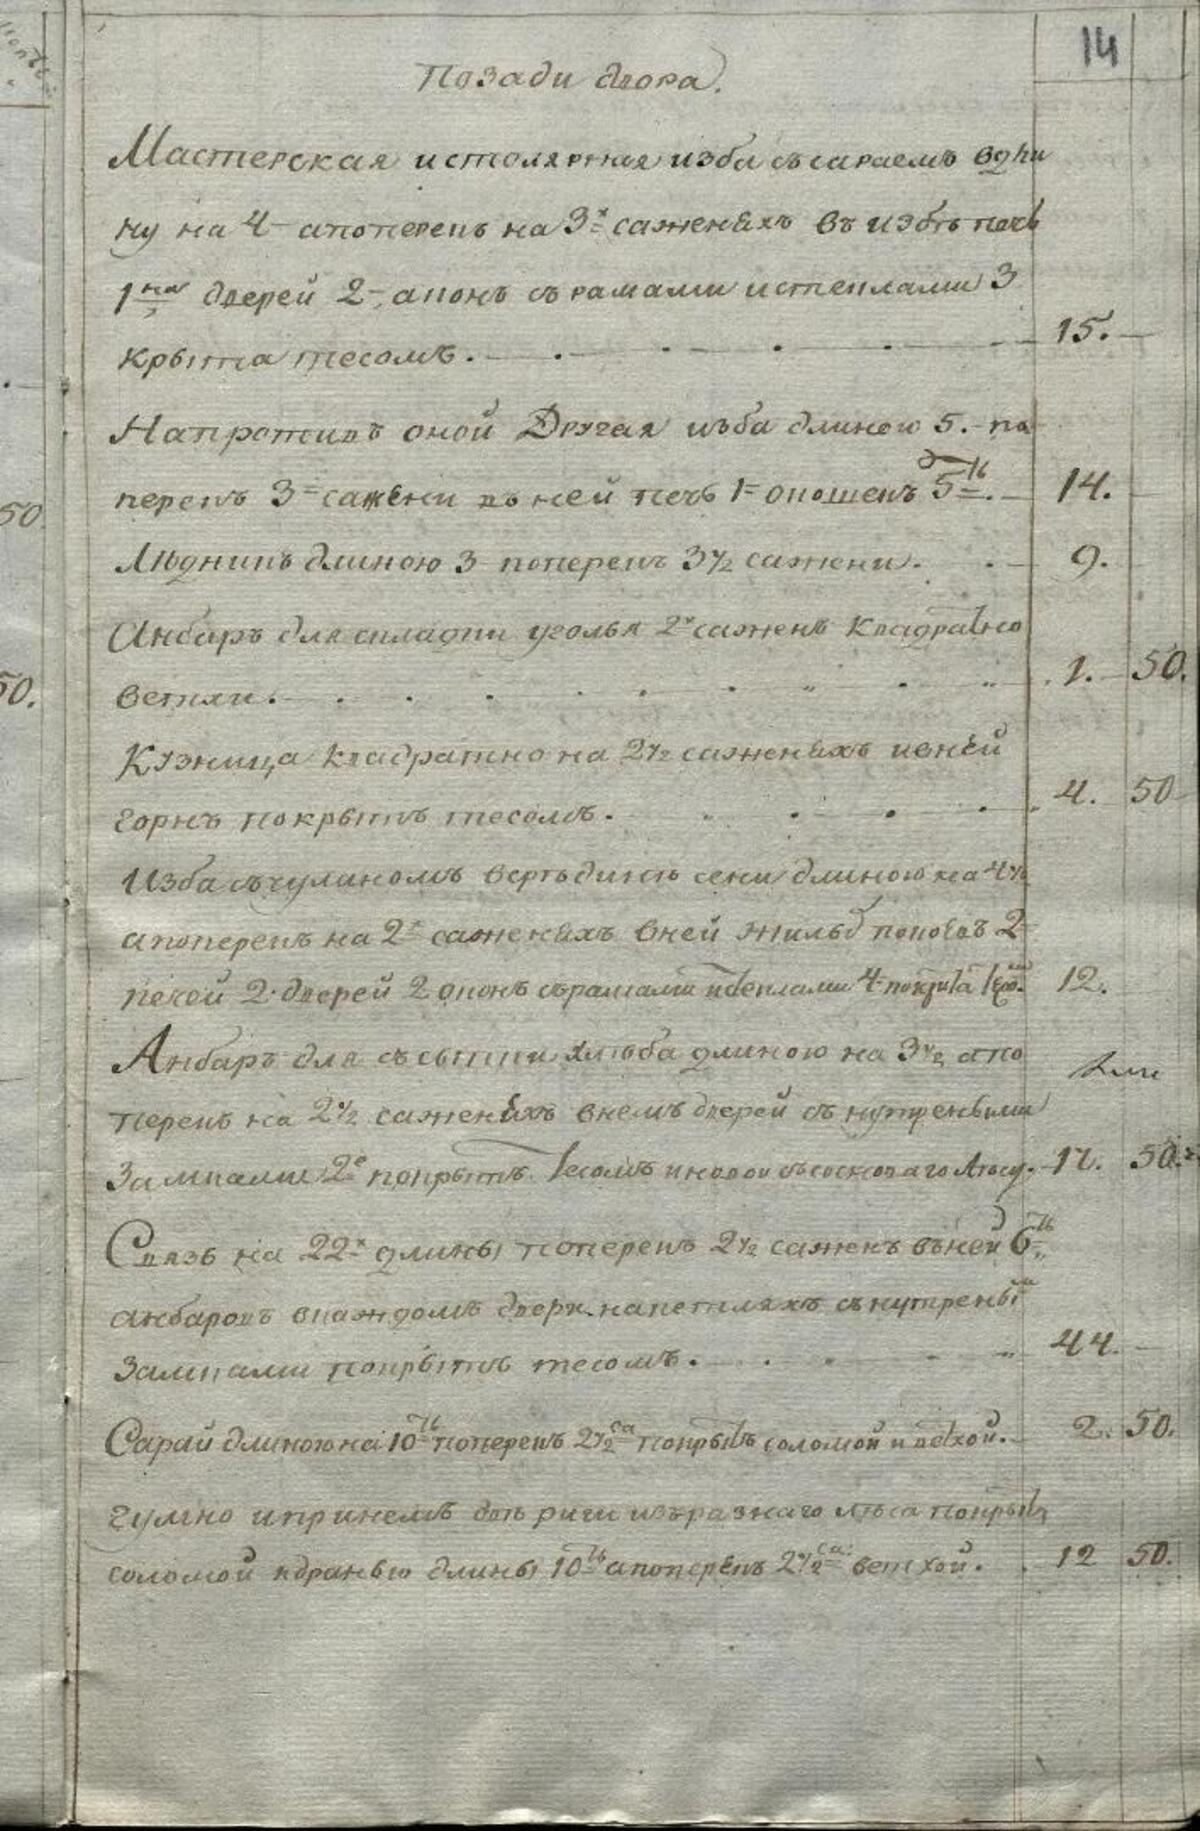 14
Позади двора.
Мастерская истолярная изба съ сараемъ вдли
ну на 4 апоперегъ на 3х саженяхъ въ избѣ печь
1на дверей 2, аконъ съ рамами истеклами 3
крыта тесомъ. 15.
Напротивъ оной Другая изба длиною 5. по
перегъ 3 сажени въ ней печь 1 окошекъ 5ть. 14.
Людникъ длиною 3 поперегъ 3 1/2 сажени. 9.
Анбаръ для складки уголья 2х саженъ квадратно
ветхи. 1. 50.
Кузница квадратно на 2 1/2 саженяхъ ивней
горнъ покрытъ тесомъ. 4. 50
Изба съ чуланомъ сени длиною на 4 1/2
апоперегъ на 2х саженяхъ вней жилыхъ покоевъ 2
печей 2. дверей 2 оконъ съ рамами истеклами 4 покрыта тесо. 12.
Анбаръ для съсыпки хлѣба длиною на 3 1/2 апо
перегъ на 2 1/2 саженяхъ внемъ дверей съ нутреными
Замками 2е покрытъ тесомъ иновой съсосноваго лѣсу. 17. 50.
Связь на 22х длины поперегъ 2 1/2 саженъ въ ней 6ть
анбаровъ вкаждомъ двери напетляхъ снутреными
Замками покрытъ тесомъ. 44.
Сарай длиною на 10ти поперегъ 2 1/2 са покрытъ соломой иветхой. 2. 50.
гумно ипринемъ двѣ риги изъразнаго лѣса покрыта
соломой идранью длины 10ть апоперегъ 2 1/2 са: ветхой. 12 50.
50
50.